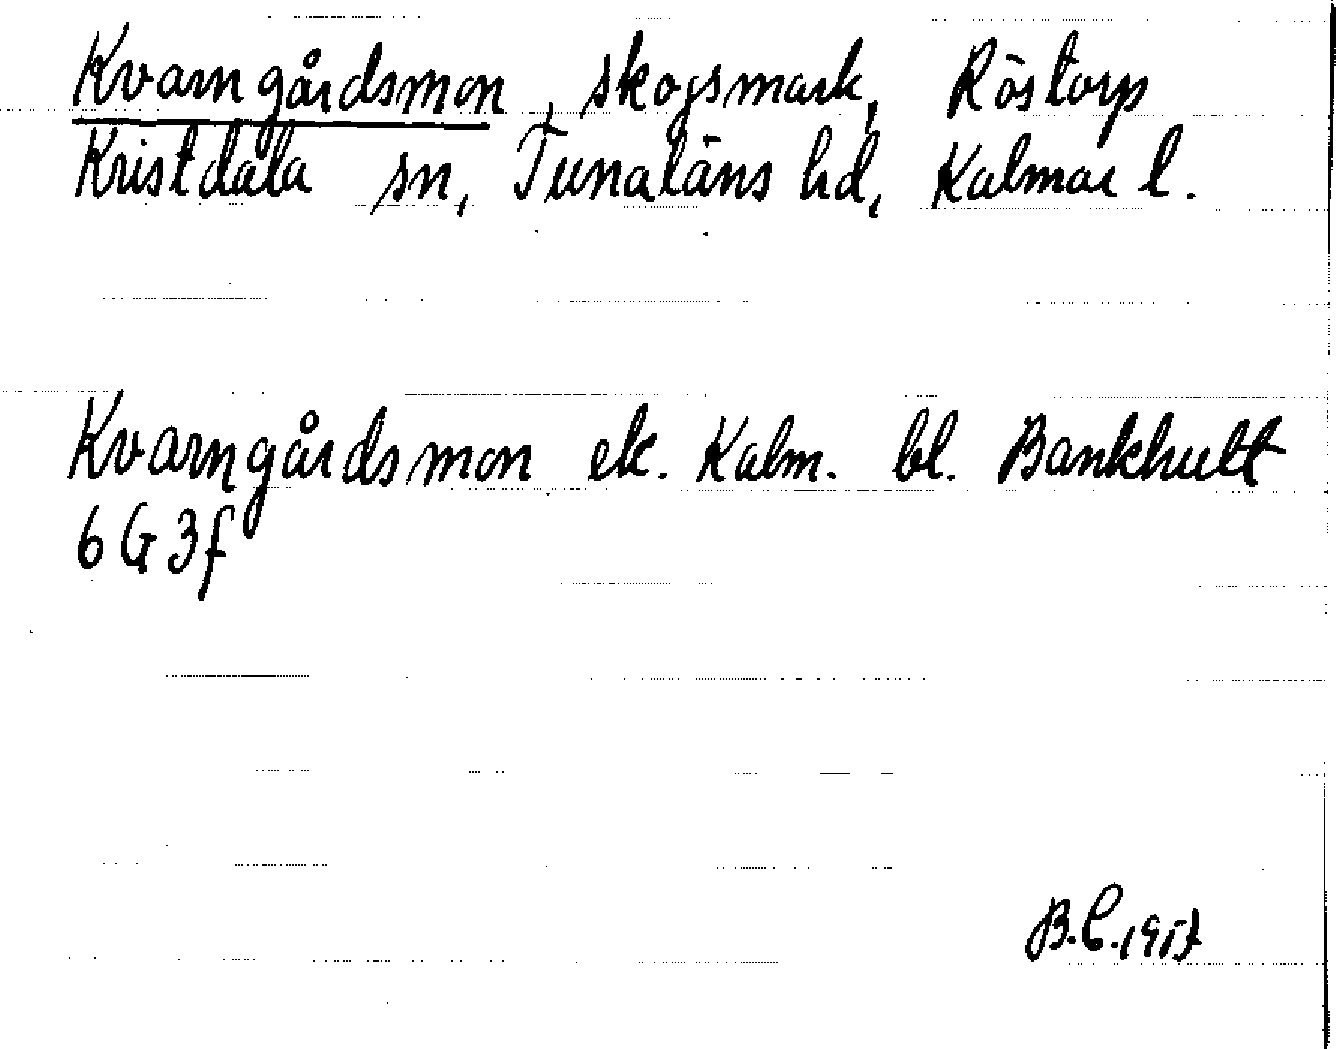 Kvarngårdsmon, skogsmark, Röstorp
Kristdala sn, Tunaläns hd, Kalmar l.
Kvarngårdsmon ek. Kalm. bl. Bankhult
6G3f
B.C. 1957